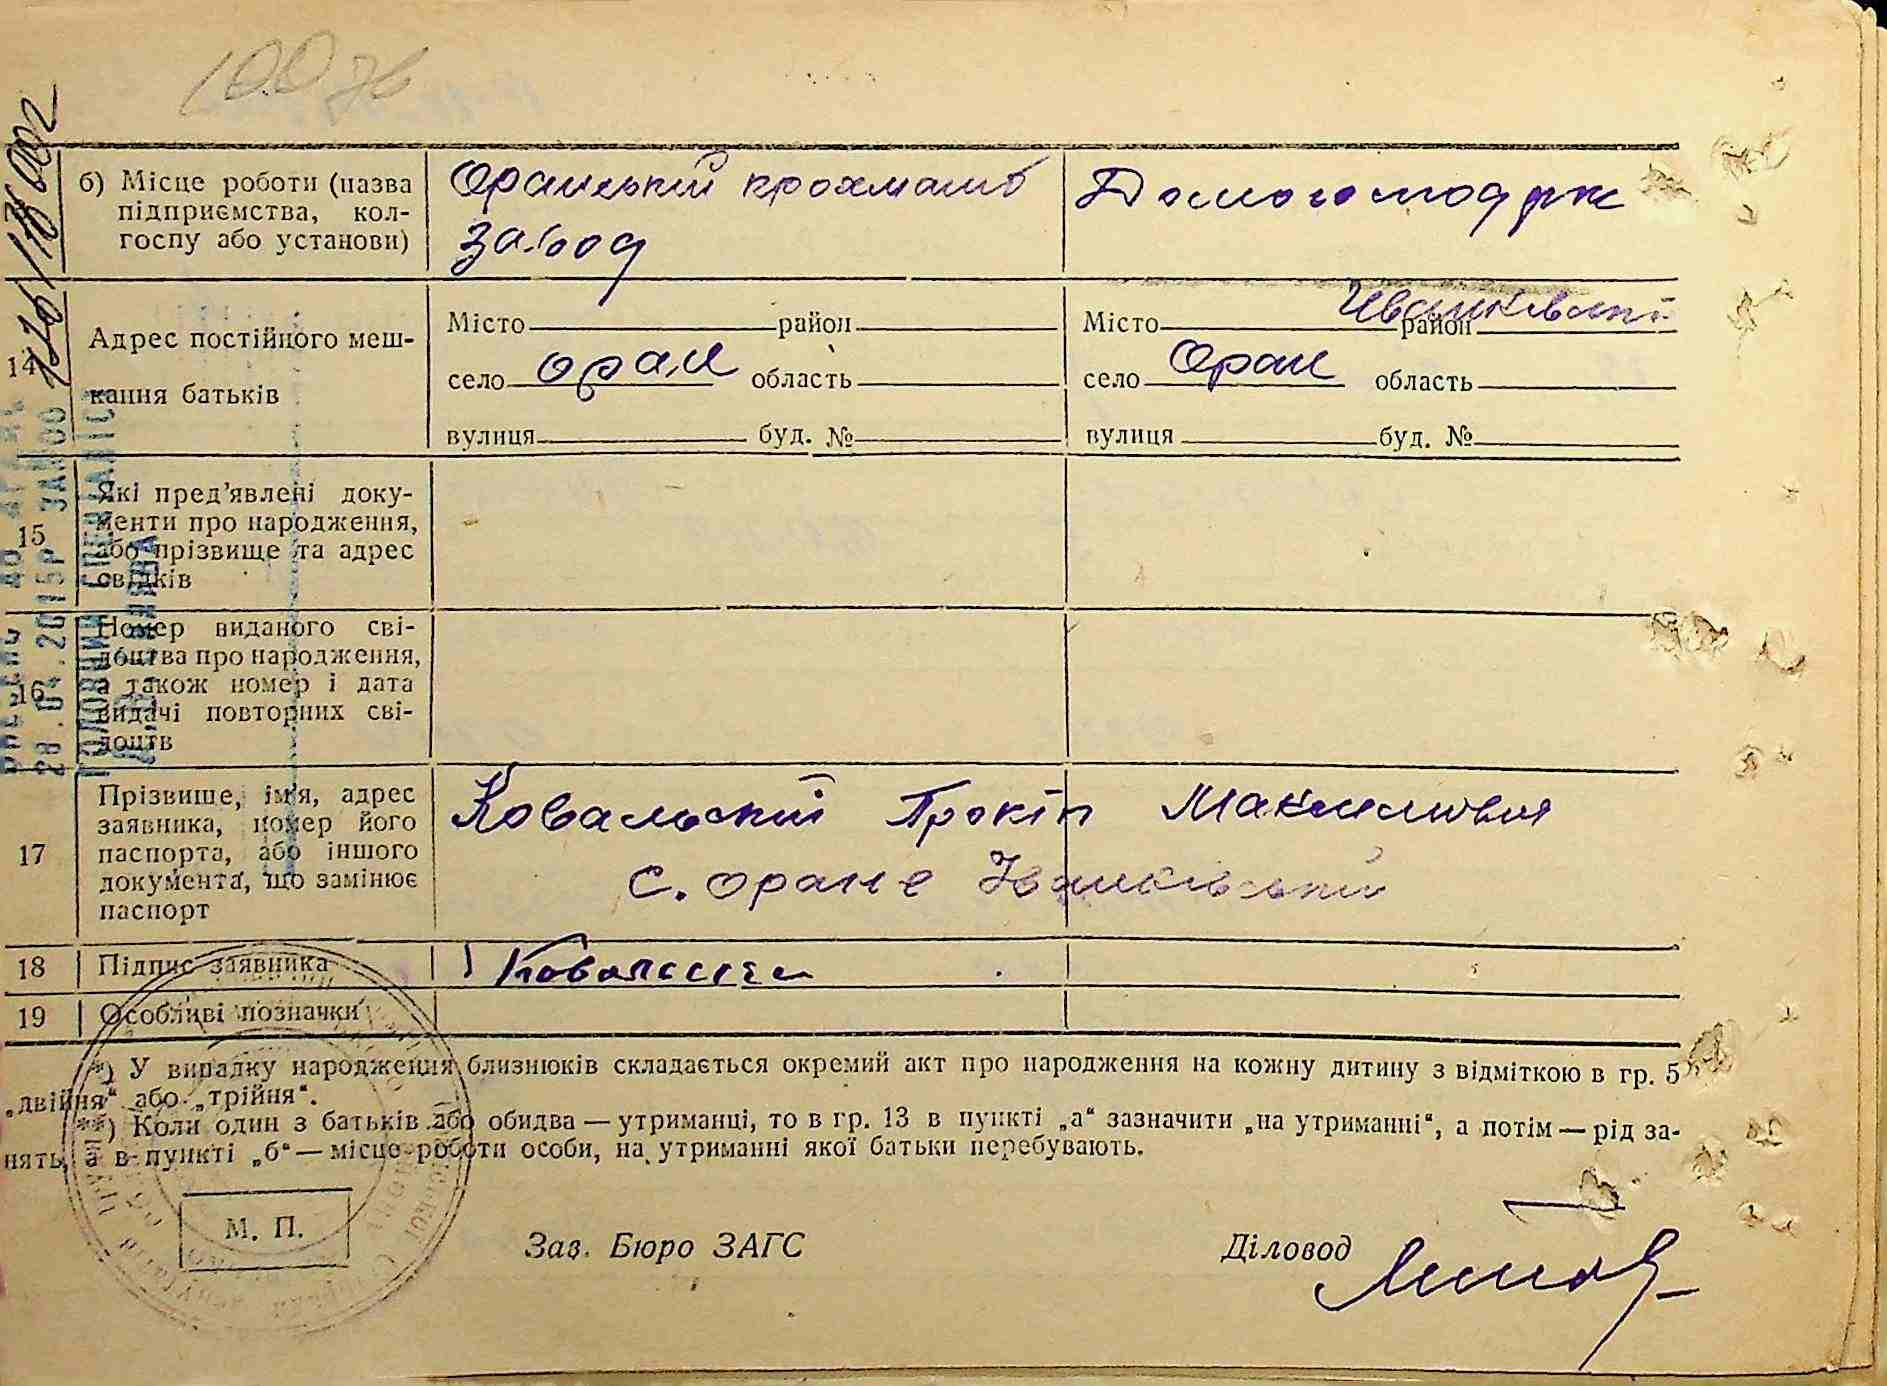 б) Місце роботи (назва
підприємства, кол-
госпу або установи)
Оранський крохмальн
завод
Домогосподрк
14
Адрес постійного меш-
кання батьків
Місто район
село Оран область
вулиця буд. №
Місто район Іванківськ
село Оран область
вулиця буд. №
15
Які пред’явлені доку-
менти про народження,
або прізвище та адрес
свідків
16
Номер виданого сві-
доцтва про народження,
а також номер і дата
видачі повторних сві-
доцтв
17
Прізвище, ім’я, адрес
заявника, номер його
паспорта, або іншого
документа, що замінює
паспорт
Ковальський Прокіп Максимович
с.Оране Іванківський
18 Підпис заявника
19 Особливі позначки
*) У випадку народження близнюків складається окремий акт про народження на кожну дитину з відміткою в гр. 5
„двійня“ або „трійня“.
**) Коли один з батьків або обидва — утриманці, то в гр. 13 в пункті „а“ зазначити „на утриманні“, а потім — рід за-
нять, а в пункті „б“ — місце роботи особи, на утриманні якої батьки перебувають.
М. П.
Зав. Бюро ЗАГС
Діловод